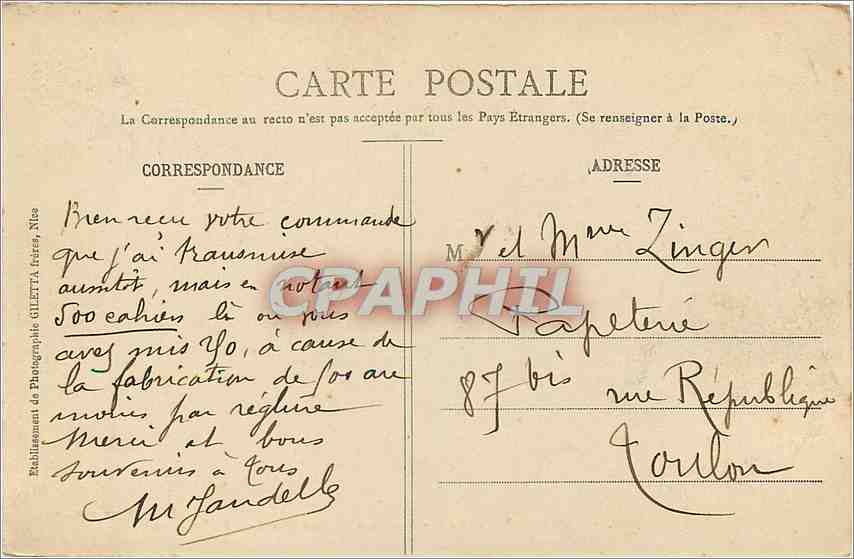 CARTE POSTALE
La Correspondance au recto n'est pas acceptée par tous les Pays Etrangers. (Se renseigner à la Poste.)
CORRESPONDANCE
Bien recu votre commande
que j'ai transmise
aussitôt, mais en notant
500 cahiers là ou vous
avez mis 50, à cause de
la fabrication de 500 au
moins par réglure
Merci et bons
souvenirs à tous
M Jandelle
ADRESSE
M r et Mme Zinger
Papeterie
87 bis rue République
Toulon
Etablissement de Photographie GILETTA frères, Nice
CPAPHIL